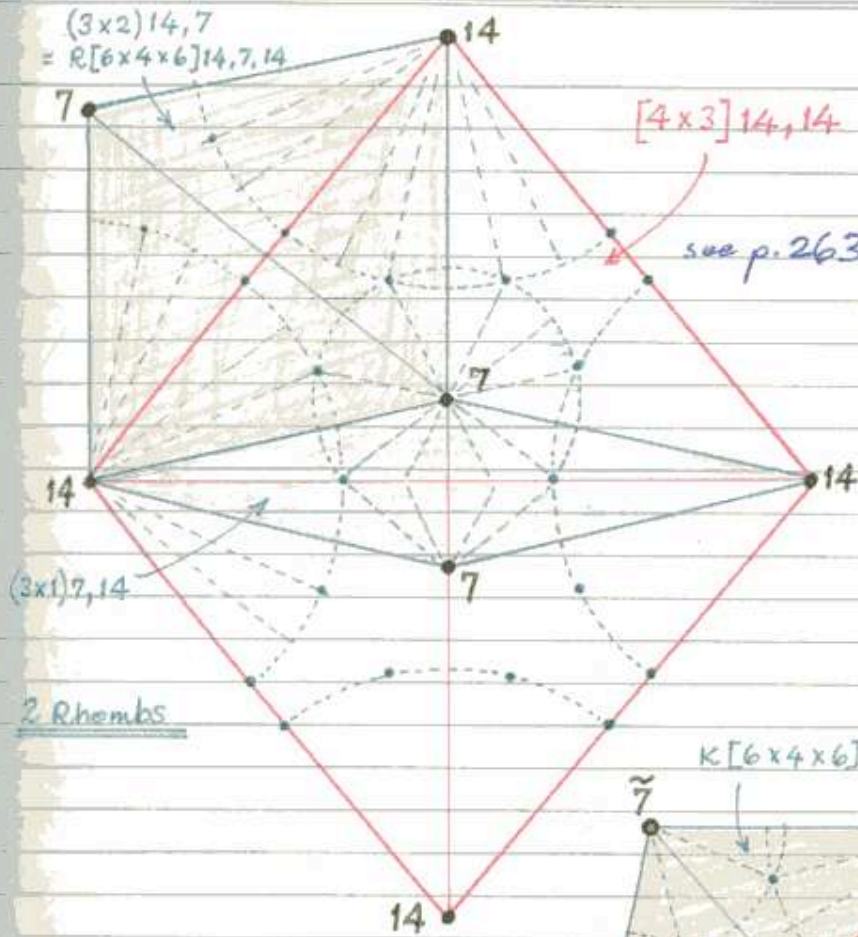 (3x2)14,7
= R[6x4x6]14,7,14
14
7
[4x3]14,14
see p.263
7
14
14
(3x1)7,14
7
2 Rhombs
K[6x4x6]
7̃
14